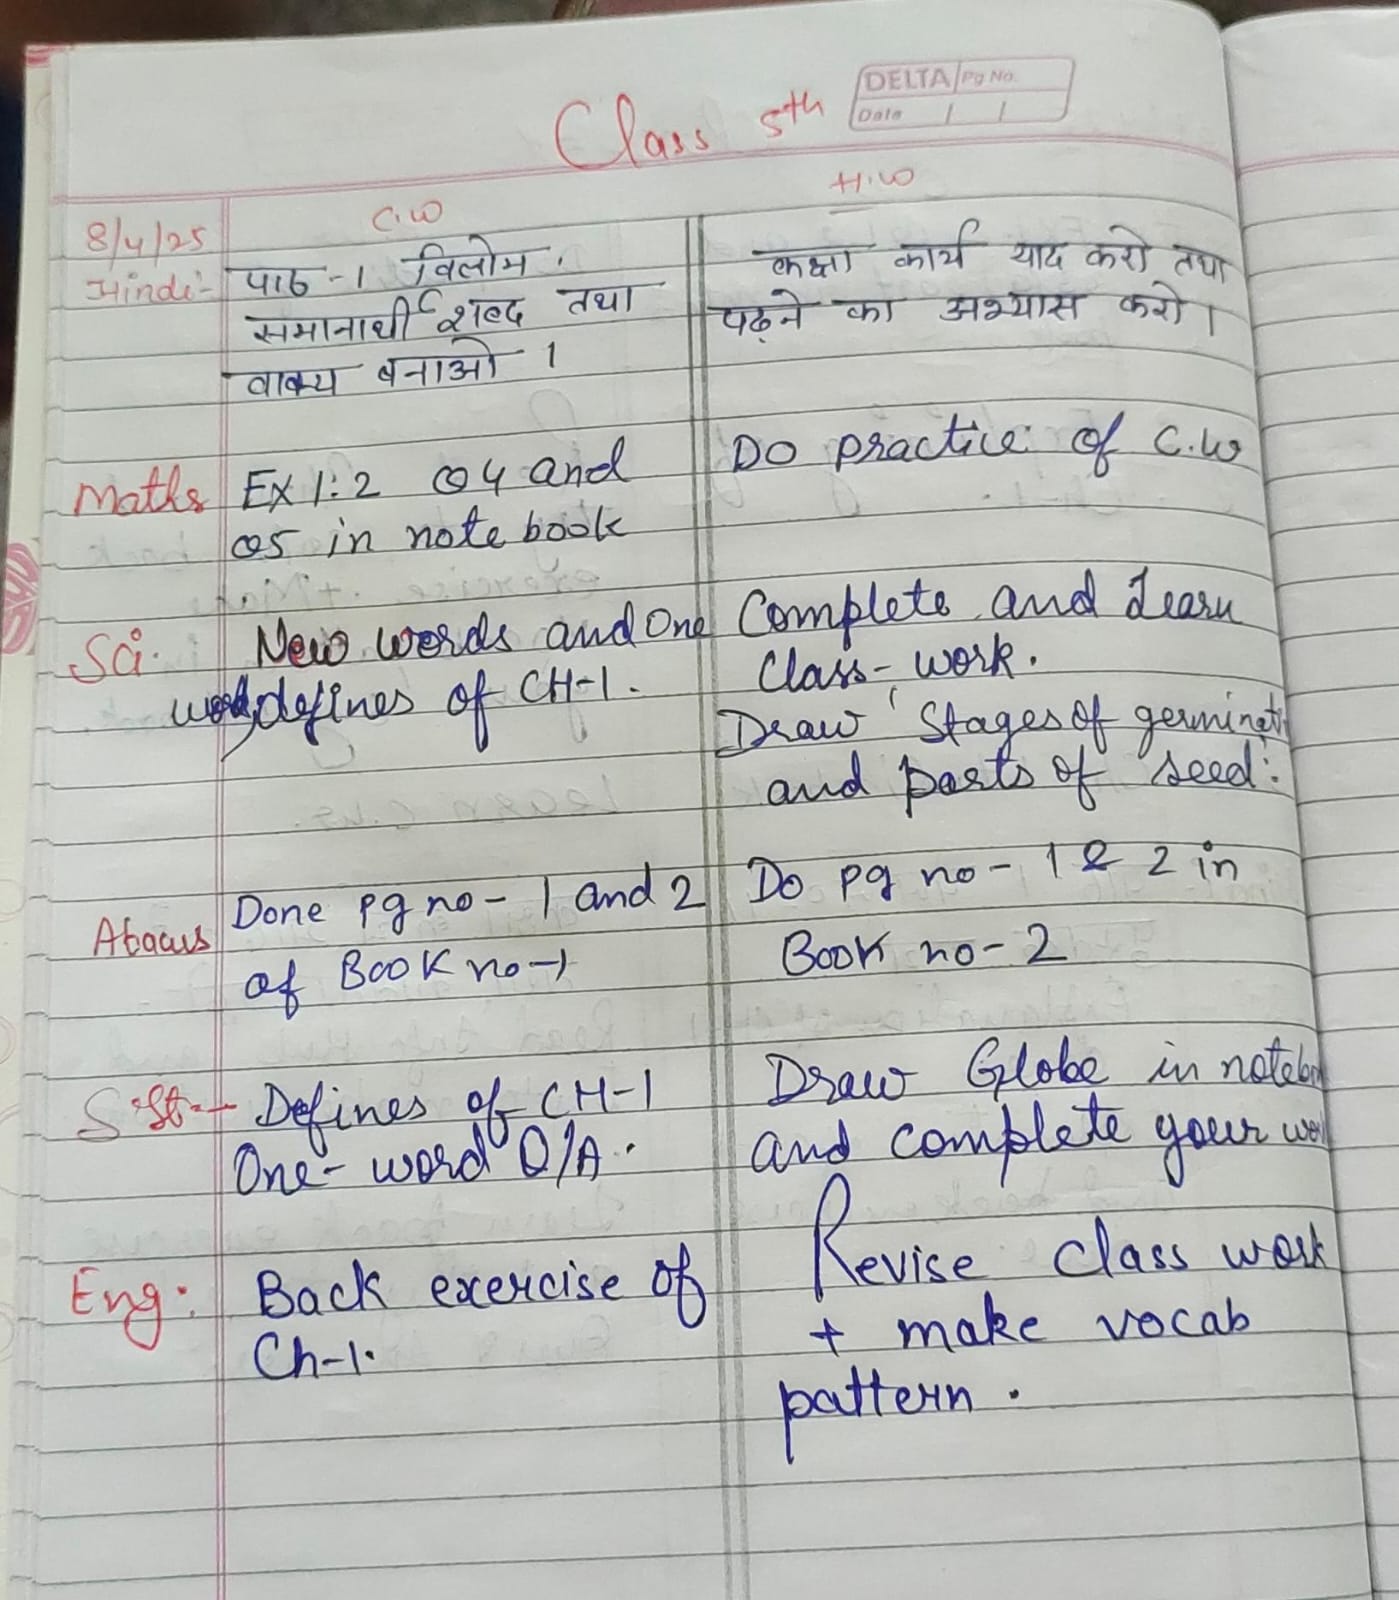 DELTA Pg No.
Date / /
Class 5th
C.W
H.W
8/4/25
Hindi:-
पाठ -1 विलोम,
समानार्थी शब्द तथा
वाक्य बनाओ ।
कक्षा कार्य याद करो तथा
पढ़ने का अभ्यास करो ।
Maths
Ex 1:2 Q4 and
Q5 in note book
Do practice of C.W
Sci.
New words and One
word, defines of CH-1.
Complete and Learn
Class-work.
Draw 'Stages of germinati
and parts of seed.
Abacus
Done pg no - 1 and 2
of Book no-1
Do pg no - 1 & 2 in
Book no-2
S.St.-
Defines of CH-1
One-word Q/A.
Draw Globe in notebo
and complete your wo
Eng:
Back exercise of
Ch-1.
Revise class work
+ make vocab
pattern.